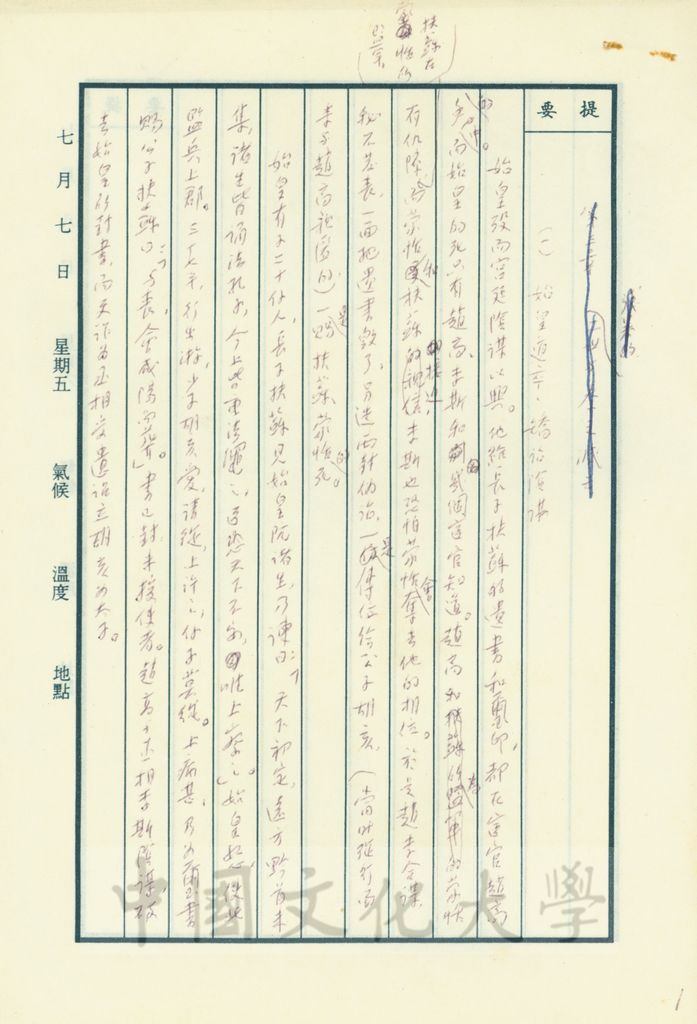 提要
七月七日 星期五 氣候 溫度 地點
(一) 始皇道卒、矯詔陰謀
始皇歿而宮廷陰謀以興。他給長子扶蘇的遺書和璽印，都在宦官趙高
的手中。而始皇的死只有趙高、李斯和幾個宦官知道。趙高和蒙恬
有仇隙，蒙恬和扶蘇的接近，李斯也恐怕蒙恬會奪去他的相位。於是趙李合謀
秘不發表，一面把遺書毀了，另造兩封偽詔，一是傳位給公子胡亥，（當時從行而
李斯趙高視為的）一是賜扶蘇、蒙恬的死。
扶蘇在
蒙恬的
始皇有子二十餘人，長子扶蘇見始皇阬諸生，乃諫曰：「天下初定，遠方黔首未
集，諸生皆誦法孔子，今上皆重法繩之，臣恐天下不安，唯上察之。」始皇怒，使
監兵上郡。三十七年，行出游，少子胡亥愛，請從，上許之，餘子莫從。上病甚，乃為璽書
賜公子扶蘇曰：「與喪，會咸陽而葬」。書已封未授使者。趙高丞相李斯陰謀，破
去始皇的封書，而更詐為丞相受遺詔立胡亥為太子。
中國文化大學
1